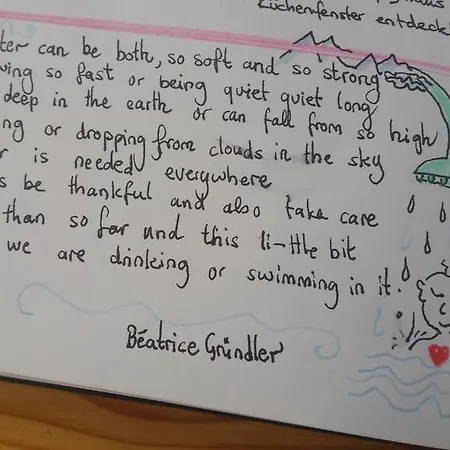 Küchenfenster entdeck
ter can be both, so soft and so strong
ing so fast or being quiet quiet long
deep in the earth or can fall from so high
ng or dropping from clouds in the sky
r is needed everywhere
s be thankful and also take care
than so far und this li-ttle bit
we are drinking or swimming in it.
Béatrice Gründler